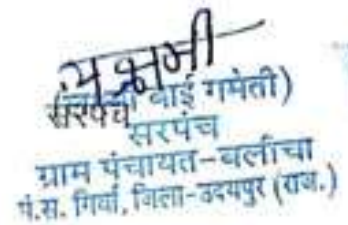 लक्ष्मी
सरपंच
बाई गमेती)
सरपंच
ग्राम पंचायत-बलीचा
पं.स. गिर्वा, जिला-उदयपुर (राज.)